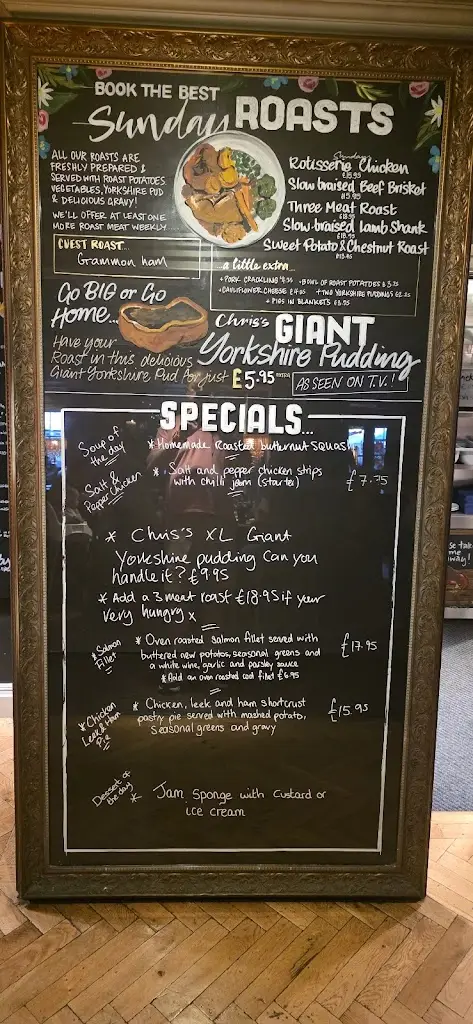 BOOK THE BEST
Sunday ROASTS
ALL OUR ROASTS ARE
FRESHLY PREPARED &
SERVED WITH ROAST POTATOES
VEGETABLES, YORKSHIRE PUD
& DELICIOUS GRAVY!
WE'LL OFFER AT LEAST ONE
MORE ROAST MEAT WEEKLY...
GUEST ROAST...
Grammon ham
Rotisserie Chicken
Slow braised Beef Brisket
Three Meat Roast
Slow-braised Lamb Shank
Sweet Potato & Chestnut Roast
...a little extra...
+ PORK CRACKLING
+ BOWL OF ROAST POTATOES
+ CAULIFLOWER CHEESE
+ TWO YORKSHIRE PUDDINGS
+ PIGS IN BLANKETS
Go BIG or Go
Home...
Have your
Roast in this delicious
Giant Yorkshire Pud for just £5.95 EXTRA
Chris's GIANT
Yorkshire Pudding
AS SEEN ON T.V.!
SPECIALS...
Soup of the day
* Homemade Roasted butternut squash
Salt & Pepper Chicken
* Salt and pepper chicken strips
with chilli jam (starter)
* Chris's XL Giant
Yorkshire pudding Can you
handle it? £9.95
* Add a 3 meat roast £18.95 if your
very hungry x
* Salmon Fillet
* Oven roasted salmon fillet served with £17.95
buttered new potatos, seasonal greens and
a white wine, garlic and parsley sauce
* Add an oven roasted cod fillet £6.95
* Chicken Leek & Ham Pie
* Chicken, leek and ham shortcrust £15.95
pastry pie served with mashed potato,
seasonal greens and gravy
Dessert of the day
* Jam Sponge with Custard or
ice cream